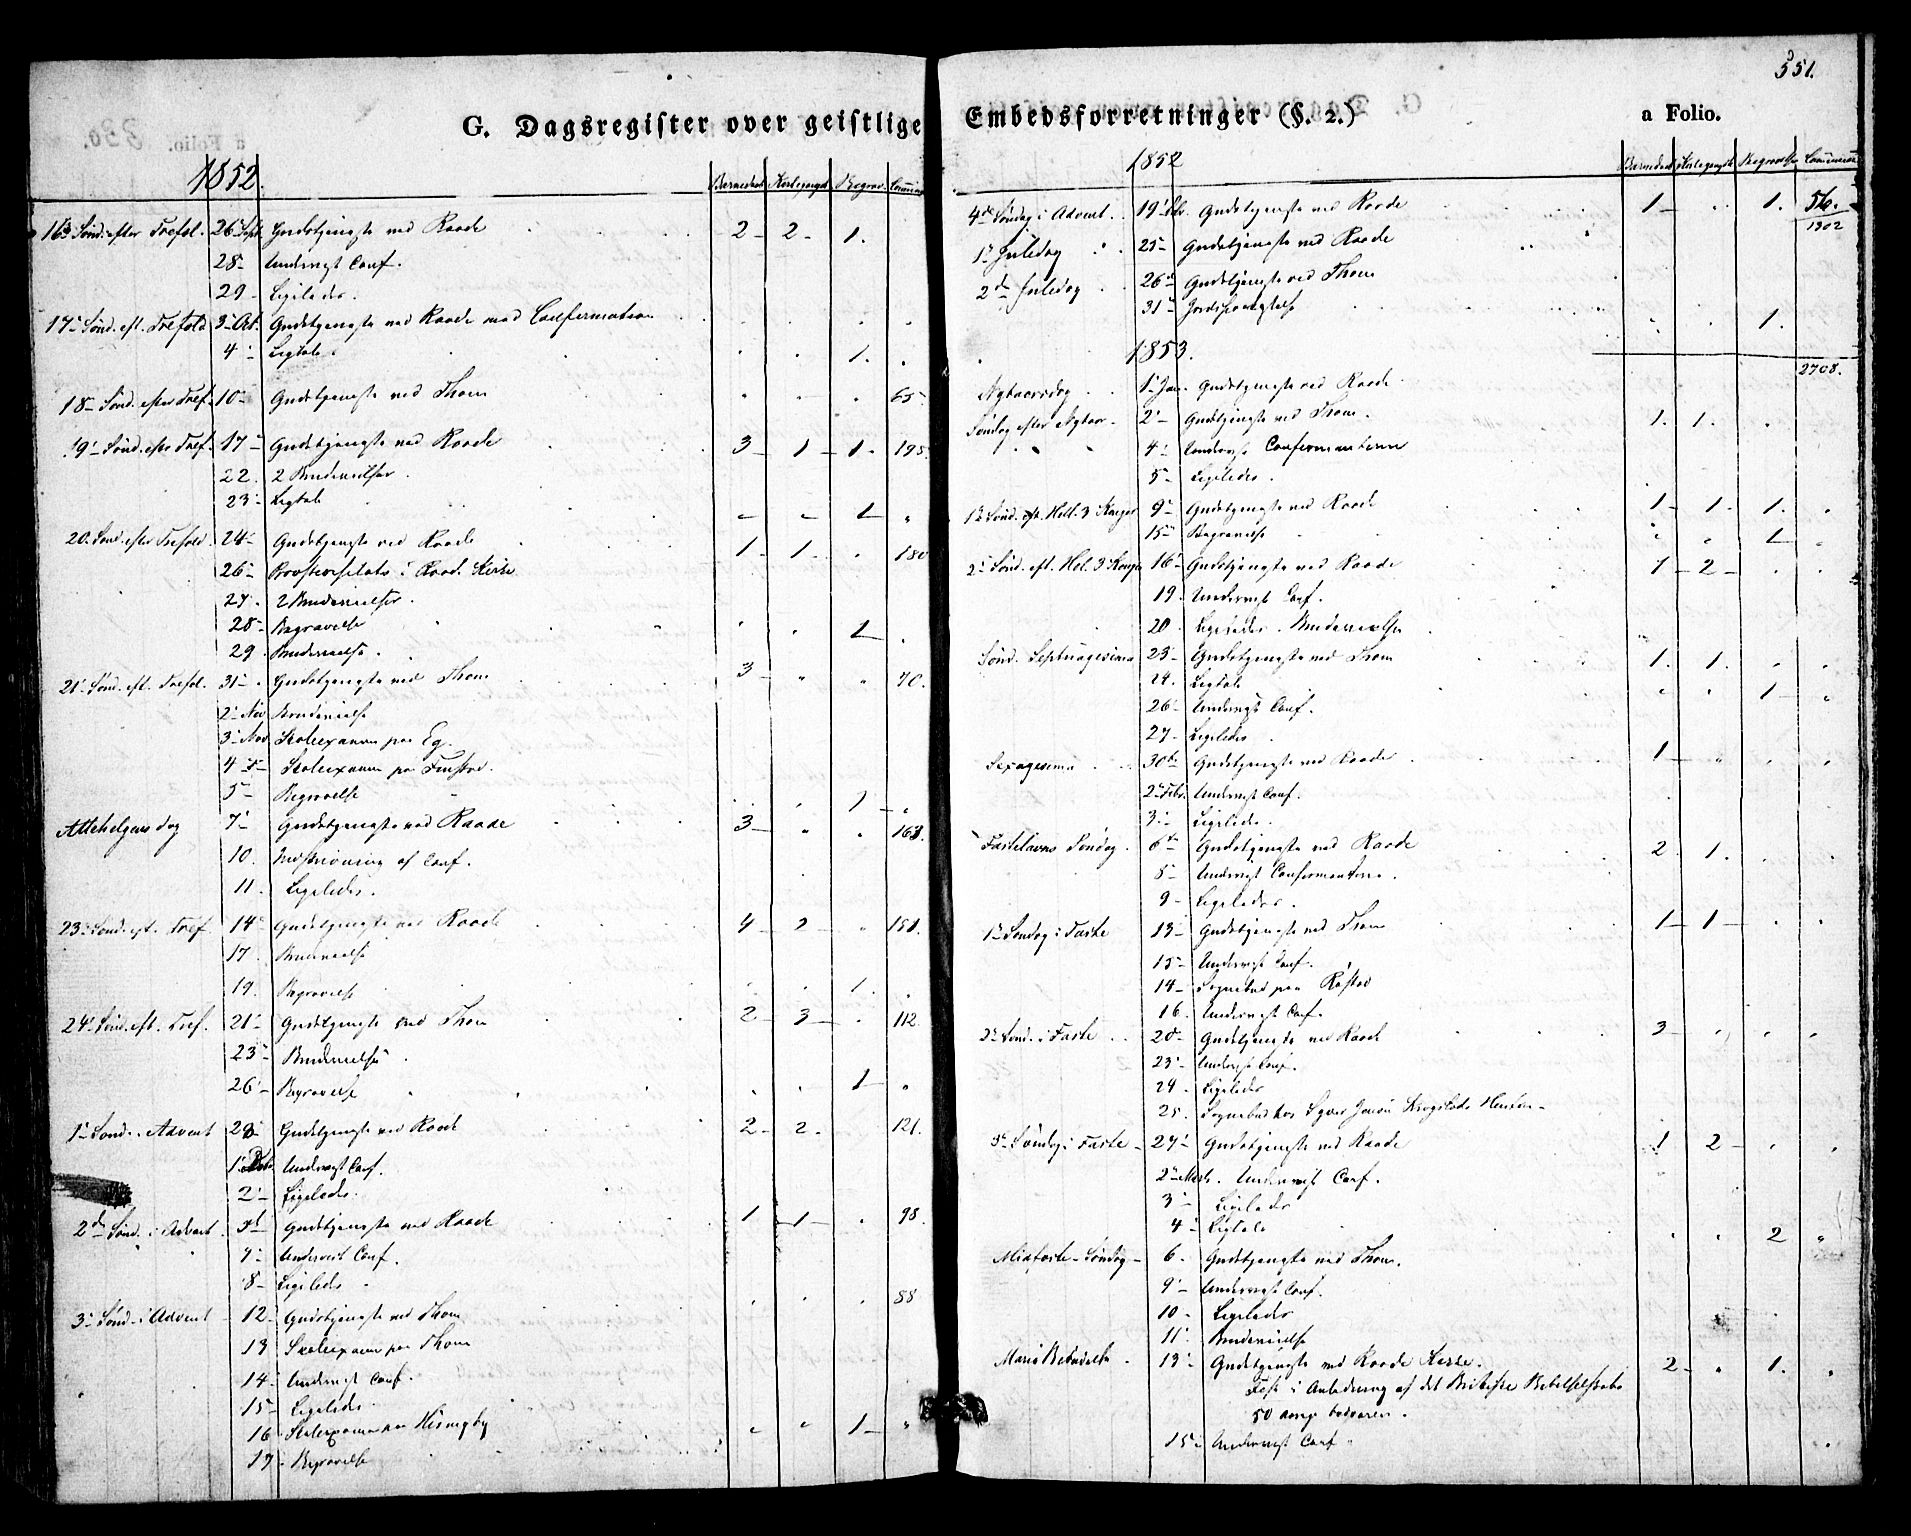 G. Dagsregister over geistlige
1852.
Barnedaab Kirkegangsk. Begrav. Commun.
16de Sönd. efter Trefol. 26 Sept. Gudstjeneste ved Raade 2 - 2 - 1.
28 - Undervist Conf.
29 - Ligeledes.
17 - Sönd. eft. Trefold. 3 - Oct. Gudstjeneste ved Raade med Confirmation
4 - Ligtale 1.
18 - Sönd. efter Tref. 10 - Gudstjeneste ved Thom 65
19 - Sönd. efter Tref. 17 - Gudstjeneste ved Raade 3 - 1 - 1. 195.
22. 2 Brudevielser.
23 - Ligtale 1
20. Sönd. efter Trefold. 24 - Gudstjeneste ved Raade 1 - 1 - 180
26 - Provstevisitats i Raad. Kirke
27. 2 Brudevielser.
28 - Begravelse 1
29. Brudevielse.
21 - Sönd. eft. Trefol. 31 - Gudstjeneste ved Thom 3 - " " 70.
2 - Nov Brudevielse
3 - Nov. Skoleexamen paa Eg.
4 - Skoleexamen paa Finstad.
5 - Begravelse 1
Allehelgens dag 7 - Gudstjeneste ved Raade 3 - " " 163.
10. Undervisning af Conf.
11. Ligeledes.
23 - Sönd. eft. Tref. 14 - Gudstjeneste ved Raade 4 - 2 - " 151.
17. Brudevielse
19. Begravelse 1.
24 - Sönd. eft. Tref. 21 - Gudstjeneste ved Thom 2 - 3 - 112.
23 - Brudevielse
26 - Begravelse 1 - "
1 - Sönd. i Advent 28 - Gudstjeneste ved Raade 2 - 2 - 121.
1 - Dcbr. Undervist Conf.
2 - Ligeledes.
2den Sönd. i Advent. 5 - Gudstjeneste ved Raade 1 - 1 - 98.
7 - Undervist Conf.
8 - Ligeledes
3 - Sönd. i Advent - 12 - Gudstjeneste ved Thom 88
13 Skoleexamen paa Thom
14 - Undervist Conf.
15 - Ligeledes.
16 - Skoleexamen paa Hisingby
17 - Begravelse 1 -
351.
Embedsforretninger (§. 2.) a Folio.
1852
Barnedaab Kirkegangsk. Begravelser Communic.
4de Söndag i Advent. 19 Dcbr. Gudstjeneste ved Raade 1 - 1. 56.
1302
1ste Juledag 25 - Gudstjeneste ved Raade
2den Juledag 26de Gudstjeneste ved Thom
31 - Jordspaakastelse 1.
1853.
2708.
Nytaarsdag 1 - Jan. Gudstjeneste ved Raade
Söndag efter Nytaar - 2 - Gudstjeneste ved Thom. 1. 1.
4 - Underviste Confirmanterne
5 - Ligeledes.
1ste Sönd. eft. Hell. 3 Konger 9 - Gudstjeneste ved Raade 1 - 1 - 1.
15 - Begravelse 1
2 - Sönd. eft. Hel. 3 Konger 16 - Gudstjeneste ved Raade 1 - 2 -
19. Undervist Conf.
20. Ligeledes. Brudevielse
Sönd. Septuagesima 23 - Gudstjeneste ved Thom 1. 1.
24. Ligtale 1 -
26 - Undervist Conf.
27 - Ligeledes
Sexagesima 30te Gudstjeneste ved Raade 1 -
2 - Febr. Undervist Conf.
3 - Ligeledes.
Fastelavns Söndag. 6te Gudstjeneste ved Raade 2. 1.
8 - Undervist Confirmanterne.
9 - Ligeledes.
1ste Söndag i Faste 13 - Gudstjeneste ved Thom 1 - 1 -
15 - Undervist Conf.
14 - Sognebud paa Röstad
16. Undervist Conf.
2 - Sönd. i Faste 20 - Gudstjeneste ved Raade 3 -
23 - Undervist Conf.
24. Ligeledes
25. Sognebud hos
3 - Söndag i Faste - 27 - Gudstjeneste ved Raade 1 2 -
2 - Marts. Undervist Conf.
3 - Ligeledes
4 - Ligtale 2 "
Midfaste - Söndag - 6. Gudstjeneste ved Thom.
9 - Undervist Conf.
10 - Ligeledes
11. Brudevielse
Mariæ Bebudelse 13 - Gudstjeneste ved Raade Kirke. 2 - " 1.
Fest i Anledning af det Britiske Bibelselskabs
50 aarige bestaaen.
15. Undervist Conf